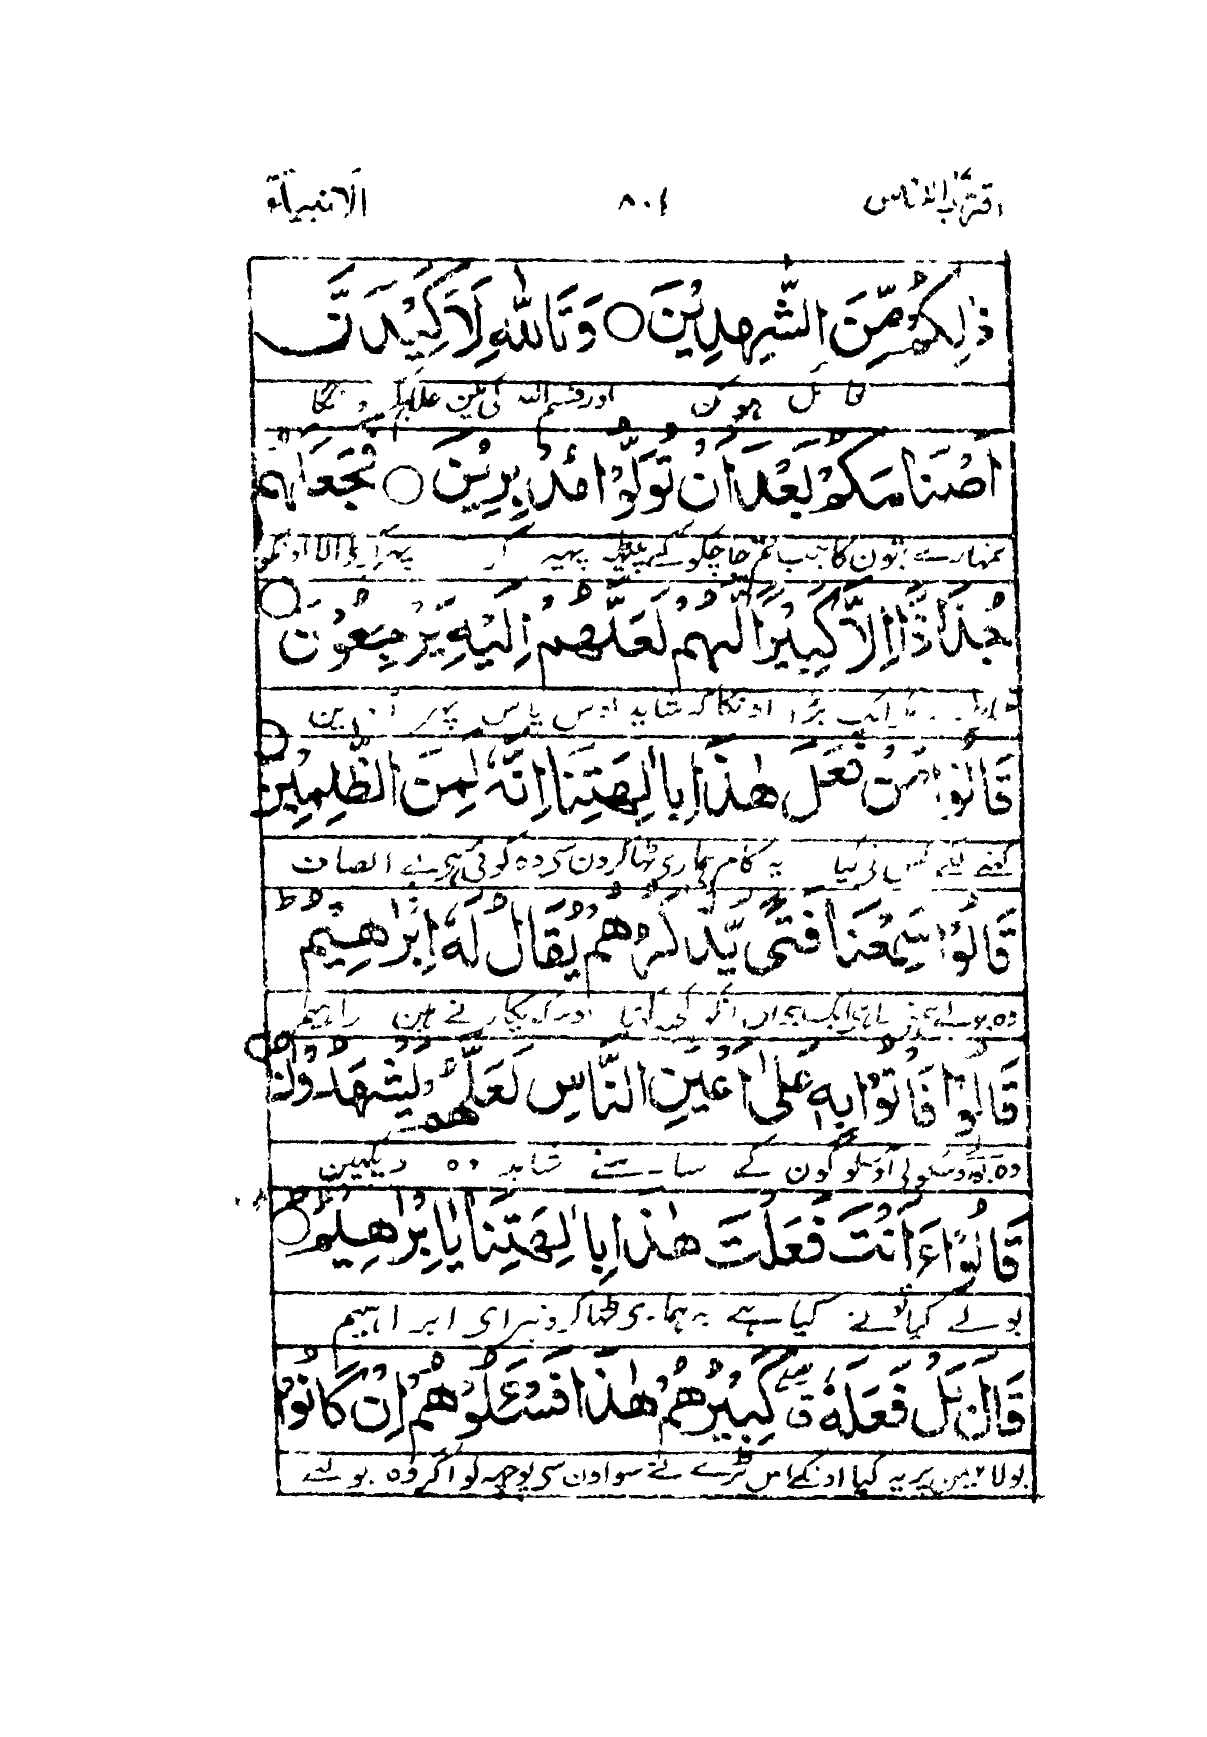 اقترب للناس ٨٠٤ الانبياء
ذٰلِكُمْ مِّنَ الشّٰهِدِيْنَ ○ وَتَاللّٰهِ لَاَكِيْدَنَّ
قائل ہون اور قسم اللہ کی مین علاج کرونگا
اَصْنَامَكُمْ بَعْدَ اَنْ تُوَلُّوْا مُدْبِرِيْنَ ○ فَجَعَلَهُمْ
تمہارے بتون کا جب تم جا چکو گے پیٹھ پہیر کر پہر کر ڈالا اونکو
جُذٰذًا اِلَّا كَبِيْرًا لَّهُمْ لَعَلَّهُمْ اِلَيْهِ يَرْجِعُوْنَ ○
ایک بڑا اونکا کہ شاید اوس پاس پہر آوین
قَالُوْا مَنْ فَعَلَ هٰذَا بِاٰلِهَتِنَا اِنَّهٗ لَمِنَ الظّٰلِمِيْنَ ○
کہنے لگے کس نی کیا یہ کام ہماری ٹھاکرون سی وہ کوئی ہی بے انصاف
قَالُوْا سَمِعْنَا فَتًى يَّذْكُرُهُمْ يُقَالُ لَهٗ اِبْرٰهِيْمُ ط
وہ بولے ایک جوان انکو کچھ کہتا اوسکو پکارتے ہین ابراہیم
قَالُوْا فَاْتُوْا بِهٖ عَلٰى اَعْيُنِ النَّاسِ لَعَلَّهُمْ يَشْهَدُوْنَ ○
وہ بولے اوسکو لی آو لوگون کے سامنے شاید وہ دیکہین
قَالُوْا ءَاَنْتَ فَعَلْتَ هٰذَا بِاٰلِهَتِنَا يٰاِبْرٰهِيْمُ ط ○
بولے کیا تو نے کیا ہے یہ ہماری ٹھاکرونپر ای ابراہیم
قَالَ بَلْ فَعَلَهٗ ق صلے كَبِيْرُهُمْ هٰذَا فَسْـَٔلُوْهُمْ اِنْ كَانُوْا
بولا نہین پر یہ کیا اونکے اس بڑے نے سو اون سی پوچہہ لو اگر وہ بولتے